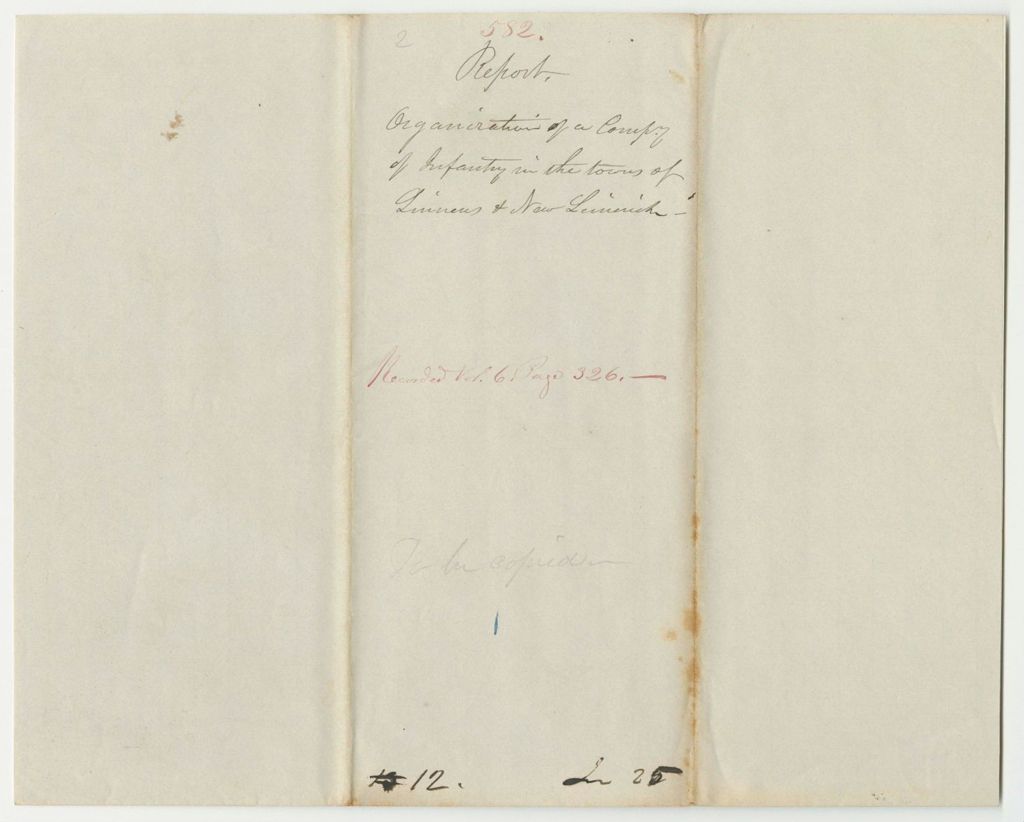 2
582.
Report.
Organization of a Compy
of Infantry in the towns of
Linneus & New Limerick –
Recorded Vol. 6. Page 326. —
To be copied
12.
25